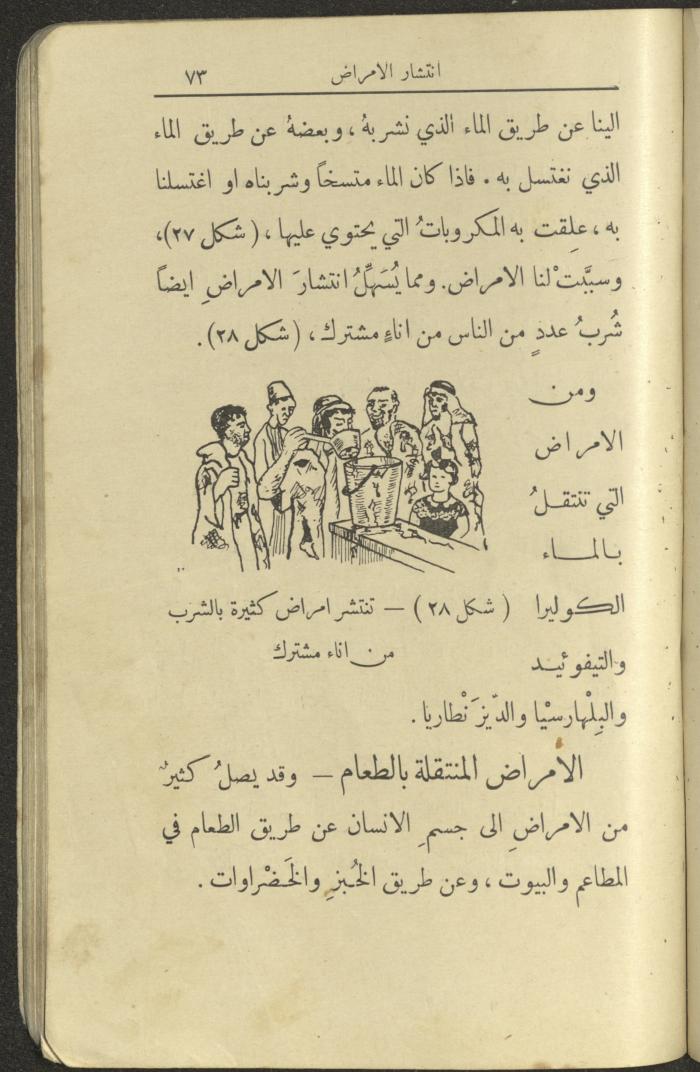 انتشار الامراض ٧٣
الينا عن طريق الماء الذي نشربهُ ، وبعضهُ عن طريق الماء
الذي نغتسل به . فاذا كان الماء متسخاً وشربناه او اغتسلنا
به ، علِقت به المكروباتُ التي يحتوي عليها ، ( شكل ٢٧)،
وسببَّتْ لنا الامراض. ومما يُسَهِّلُ انتشارَ الامراضِ ايضاً
شُربُ عددٍ من الناس من اناءٍ مشترك ، (شكل ٢٨).
ومن
الامراض
التي تنتقـلُ
بـالمـاء
الكوليرا
والتيفوئيـد
( شكل ٢٨ ) — تنتشر امراض كثيرة بالشرب
من اناء مشترك
والبِلْهارسْيا والدّيزَنْطاريا .
الامراض المنتقلة بالطعام — وقد يصلُ كثيرٌ
من الامراضِ الى جسمِ الانسان عن طريق الطعام في
المطاعم والبيوت ، وعن طريق الخُبزِ والخَضْراوات .